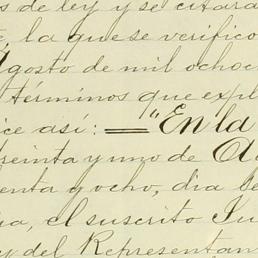 s de ley y se citará
, la que se verificó
Agosto de mil ochoc
términos que expl
ice así: = "En la
treinta y uno de A
enta y ocho, dia se
a, el suscrito Ju
y del Representan